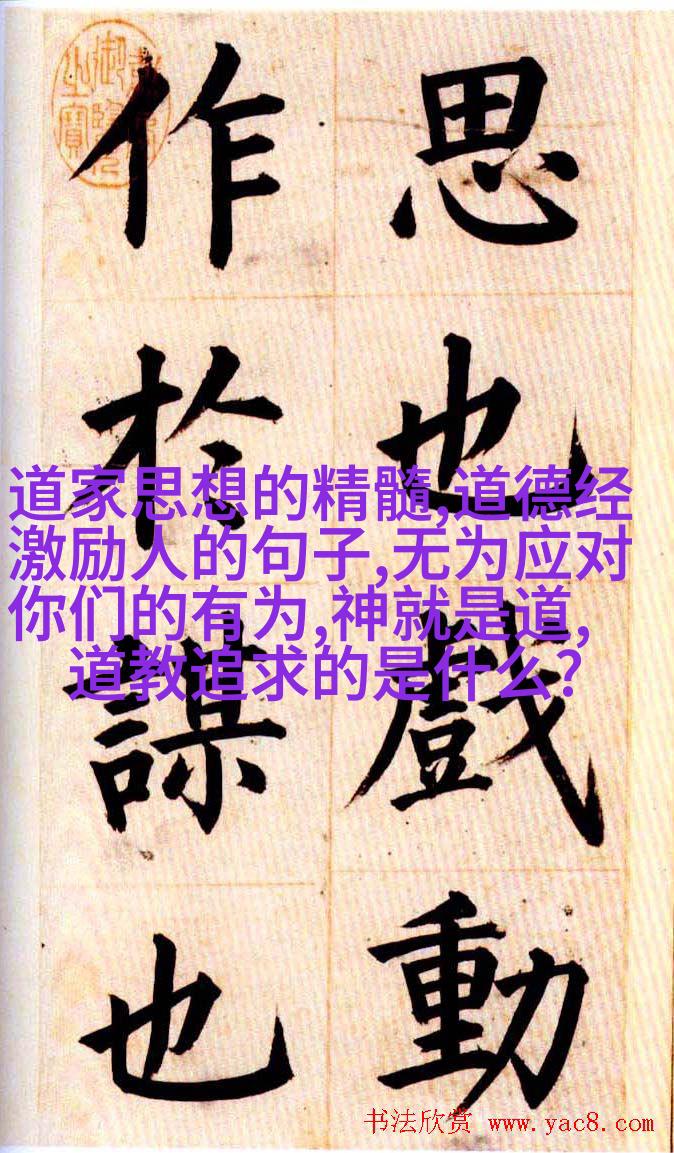 思也戲動
作於謀也
道家思想的精髓,道德经
激励人的句子,无为应对
你们的有为,神就是道,
道教追求的是什么?
书法欣赏 www.yac8.com